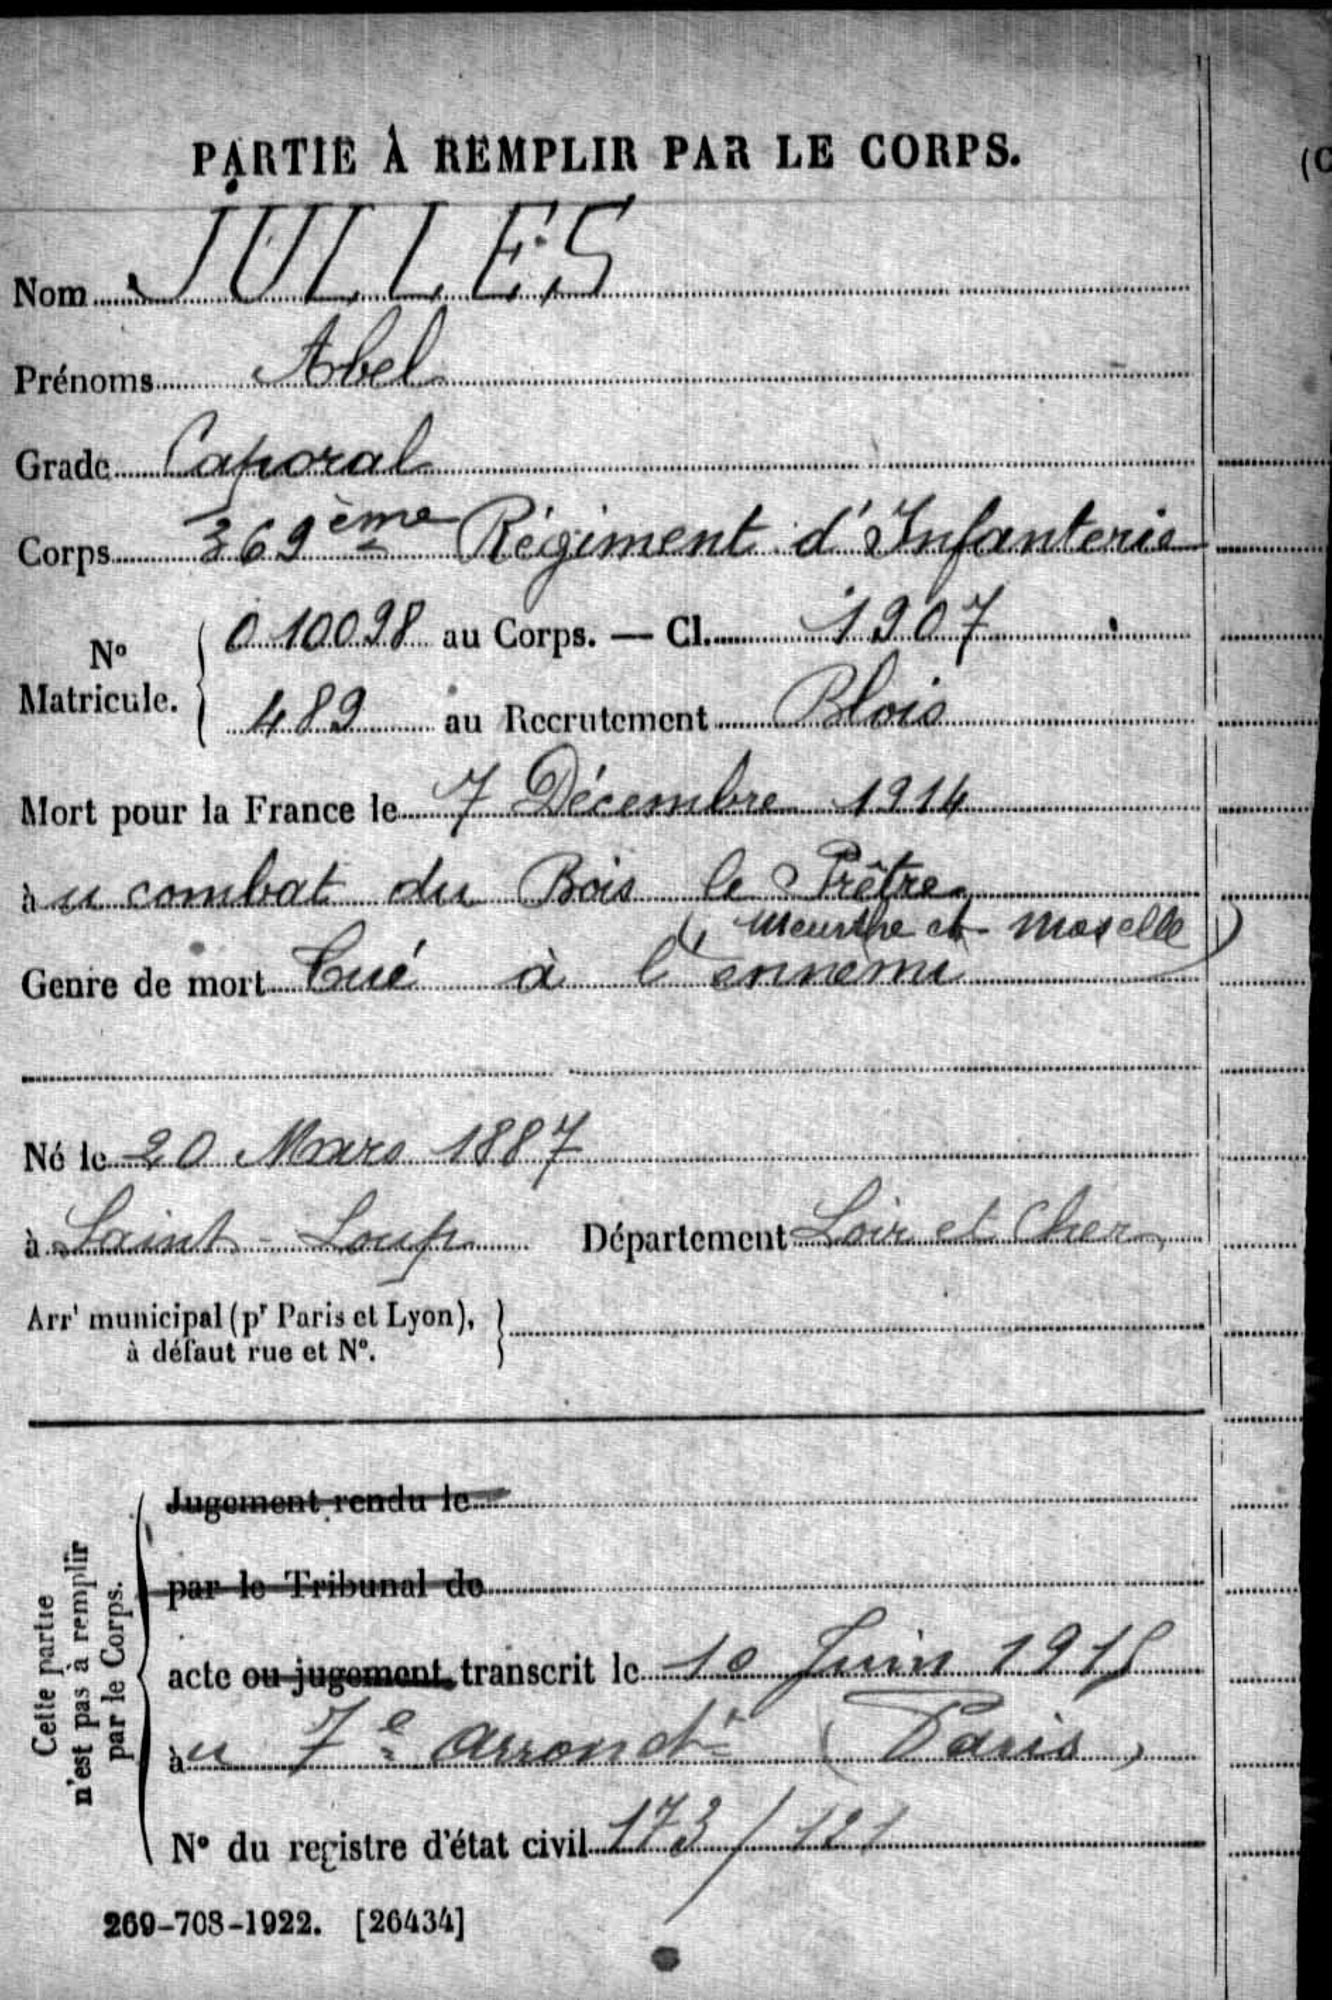 PARTIE À REMPLIR PAR LE CORPS.
(C
Nom JULLES
Prénoms Abel
Grade Caporal
Corps 369ème Régiment d'Infanterie
N° Matricule. { 010098 au Corps. — Cl. 1907
489 au Recrutement Blois
Mort pour la France le 7 Décembre 1914
au combat du Bois le Prêtre
(Meurthe et Moselle)
Genre de mort Tué à l'ennemi
Né le 20 Mars 1887
à Saint-Loup Département Loir et Cher
Arrt municipal (pr Paris et Lyon), }
à défaut rue et N°.
Cette partie n'est pas à remplir par le Corps.
Jugement rendu le
par le Tribunal de
acte ou jugement transcrit le 10 Juin 1915
au 7e arrondt (Paris)
N° du registre d'état civil 173/121
269-708-1922. [26434]